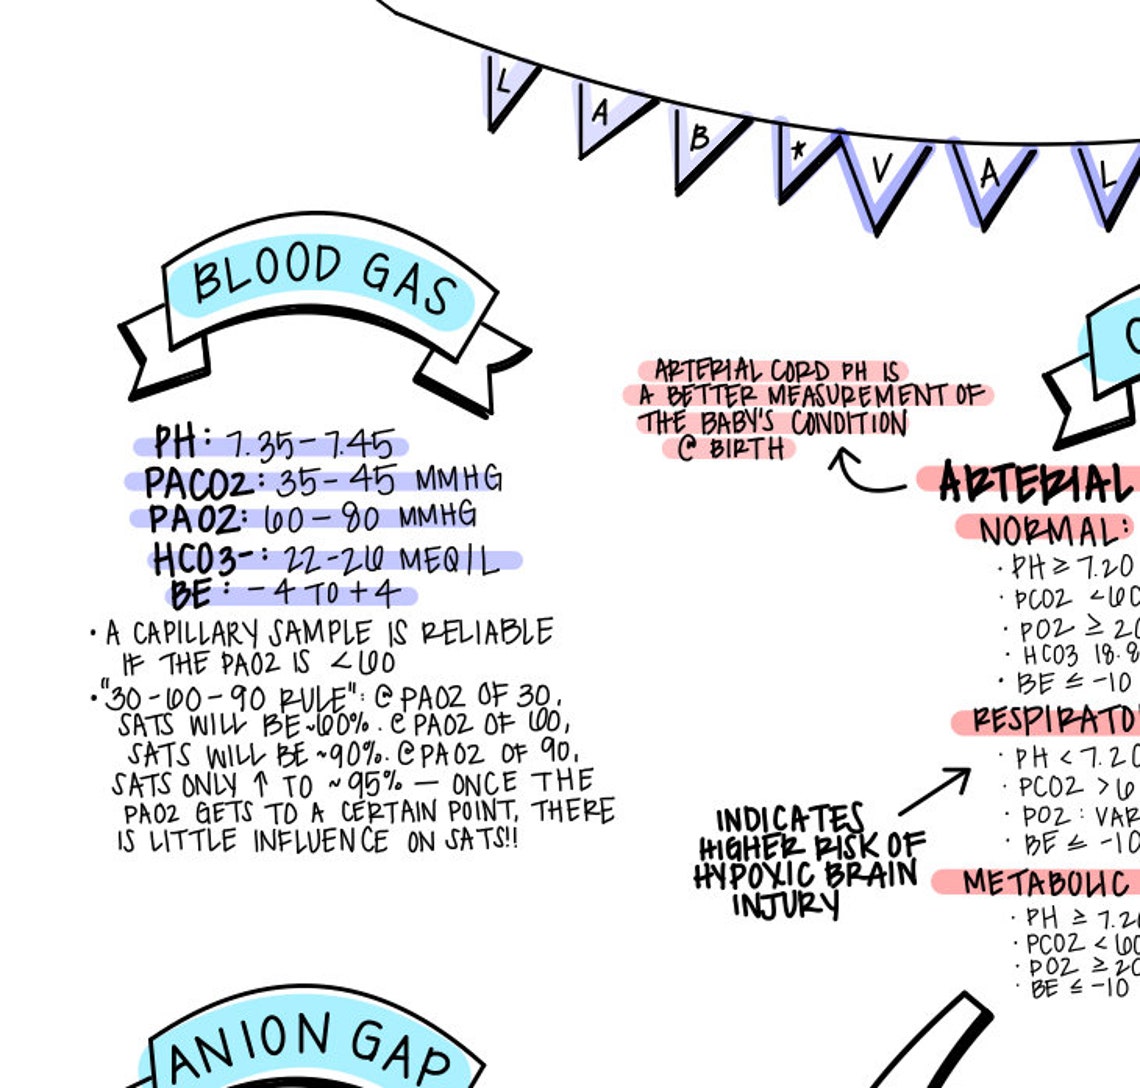 LAB * VAL
BLOOD GAS
PH: 7.35-7.45
PACO2: 35-45 MMHG
PAO2: 60-80 MMHG
HCO3-: 22-26 MEQ/L
BE: -4 TO +4
• A CAPILLARY SAMPLE IS RELIABLE
IF THE PAO2 IS <60
• "30-60-90 RULE": @ PAO2 OF 30,
SATS WILL BE ~60%. @ PAO2 OF 60,
SATS WILL BE ~90%. @ PAO2 OF 90,
SATS ONLY ↑ TO ~95% — ONCE THE
PAO2 GETS TO A CERTAIN POINT, THERE
IS LITTLE INFLUENCE ON SATS!!
ANION GAP
ARTERIAL CORD PH IS
A BETTER MEASUREMENT OF
THE BABY'S CONDITION
@ BIRTH
ARTERIAL
NORMAL:
• PH ≥ 7.20
• PCO2 <60
• PO2 ≥ 20
• HCO3 18.8
• BE ≤ -10
RESPIRATO
• PH < 7.20
• PCO2 >6
• PO2: VAR
• BE ≤ -10
INDICATES
HIGHER RISK OF
HYPOXIC BRAIN
INJURY
METABOLIC
• PH ≥ 7.20
• PCO2 <60
• PO2 ≥ 20
• BE ≤ -10